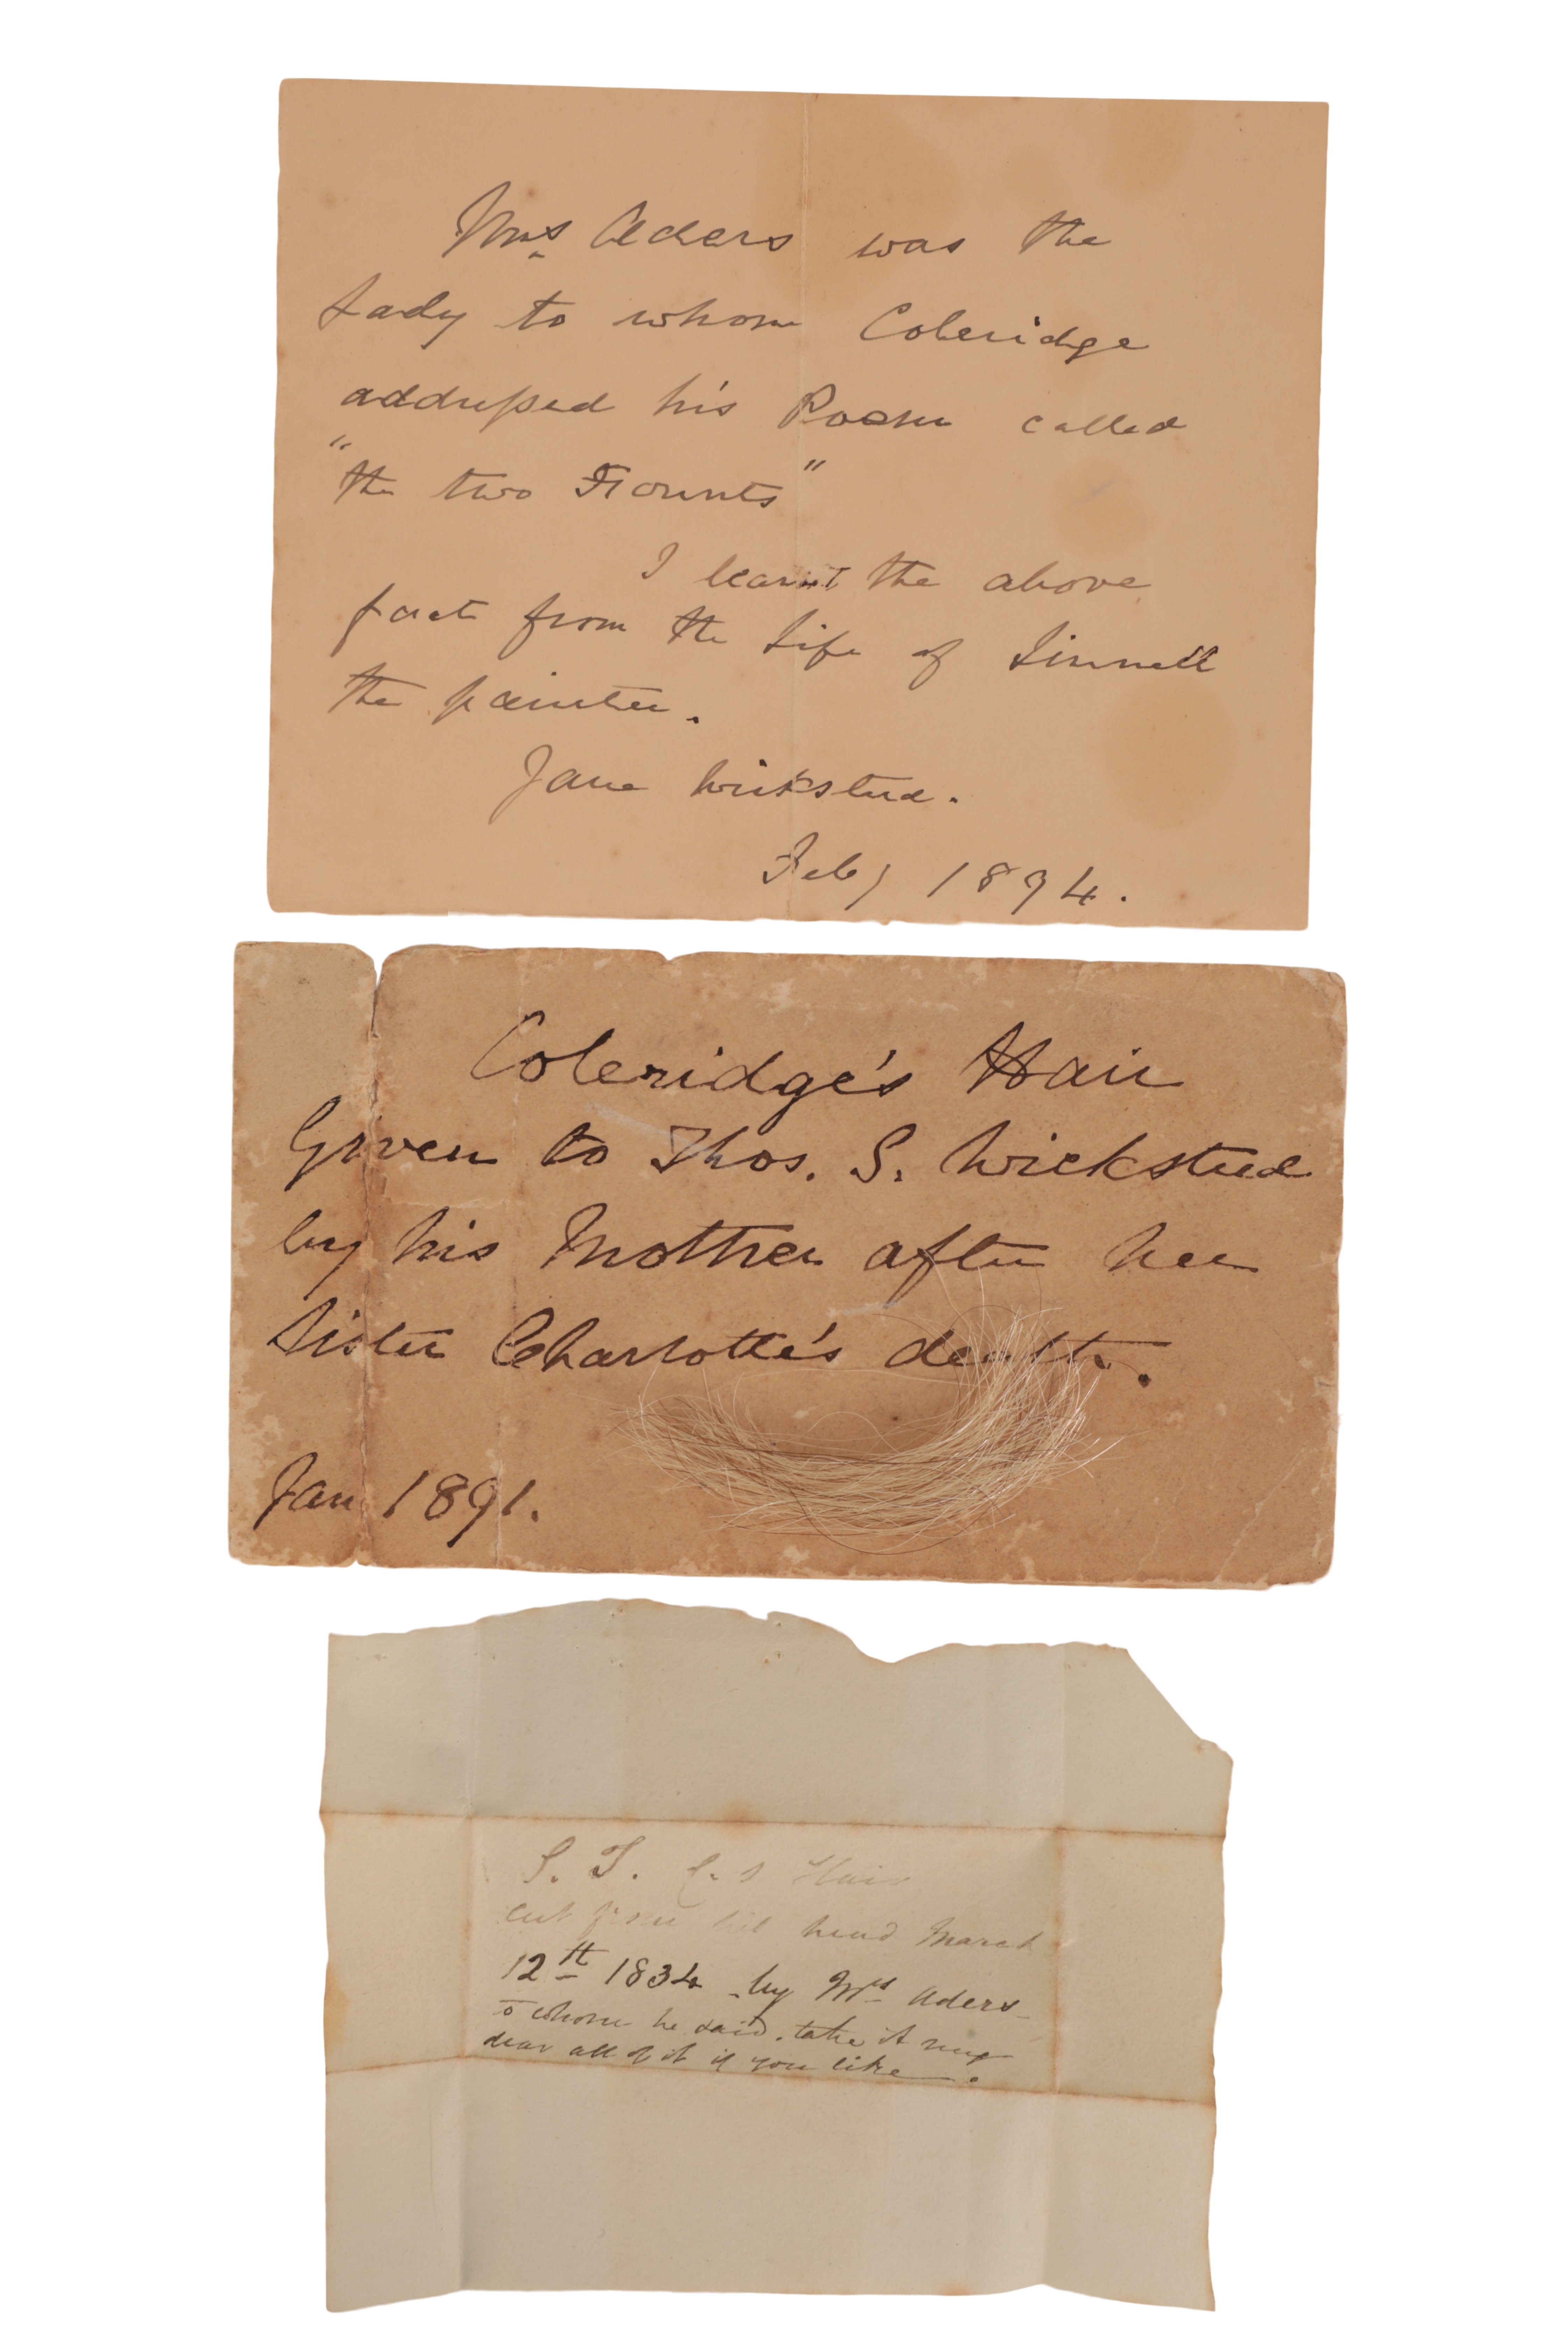 Mrs Aders was the
Lady to whom Coleridge
addressed his Poem called
"the two Founts"
I learnt the above
fact from the Life of Linnell
the painter.
Jane Wicksteed.
Feby 1894.
Coleridge's Hair
Given to Thos. S. Wicksteed
by his Mother after her
Sister Charlotte's death.
Jan 1891.
S. T. C.s Hair
cut from his head March
12th 1834 by Mrs Aders
to whom he said, take it my
dear all of it if you like.